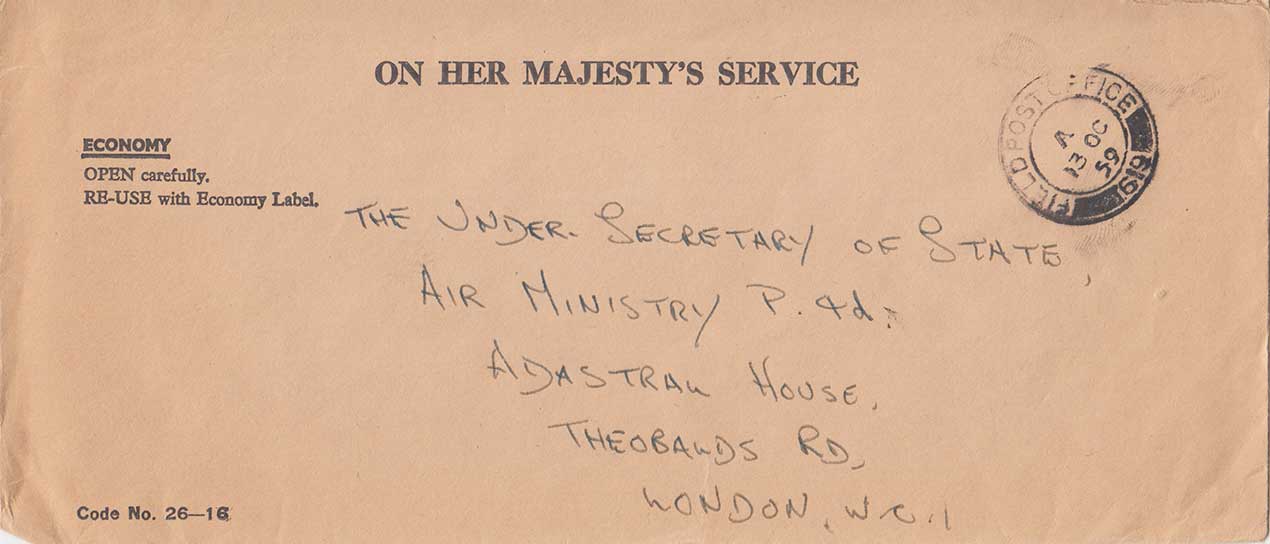 ON HER MAJESTY'S SERVICE
FIELD POST OFFICE
1619
A
13 OC
59
ECONOMY
OPEN carefully.
RE-USE with Economy Label.
THE UNDER-SECRETARY OF STATE,
AIR MINISTRY P.4d.
ADASTRAL HOUSE,
THEOBALDS RD,
LONDON, W.C.1
Code No. 26—16